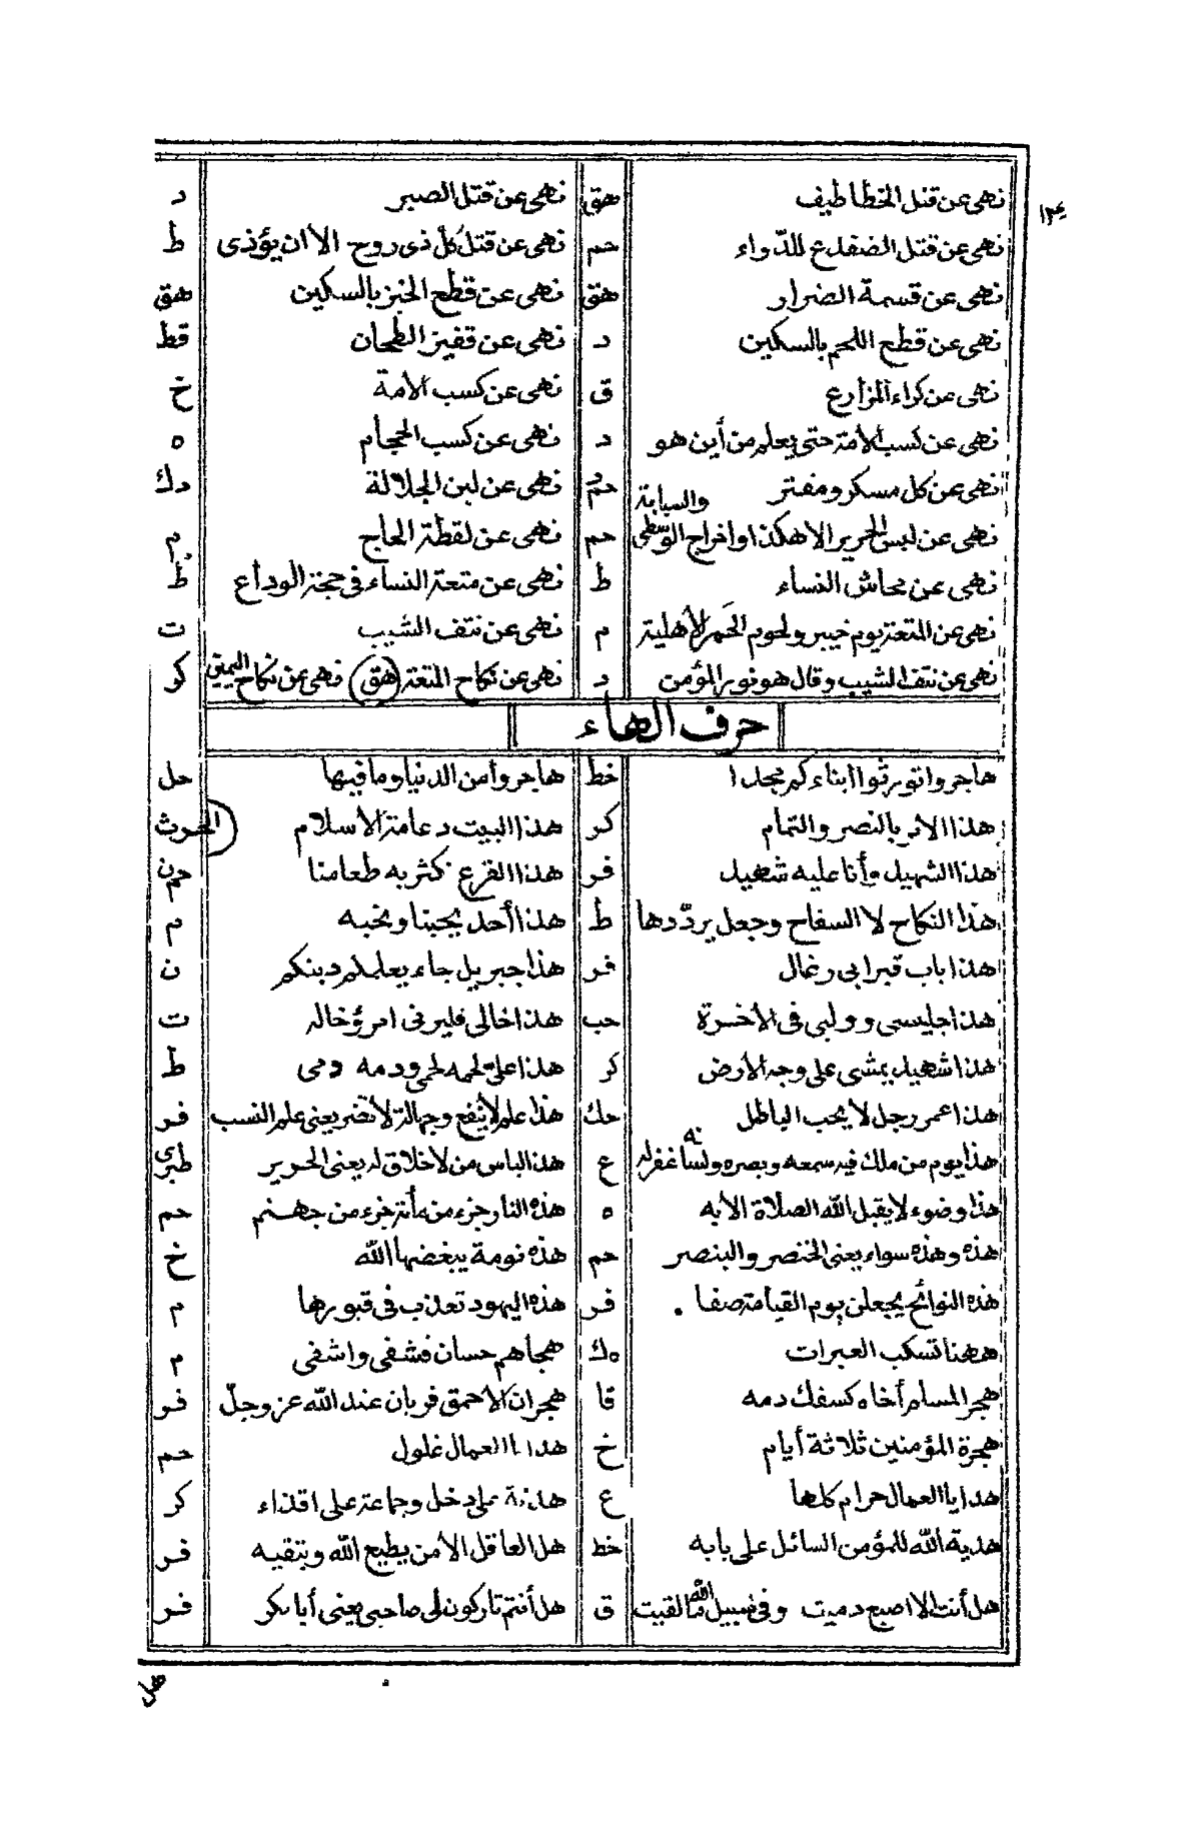 ١٣٤
نهى عن قتل الخطاطيف هق نهى عن قتل الصبر د
نهى عن قتل الضفدع للدّواء حم نهى عن قتل كل ذى روح الا ان يؤذى ط
نهى عن قسمة الضرار هق نهى عن قطع الخبز بالسكين هق
نهى عن قطع اللحم بالسكين د نهى عن قفيز الطحان قط
نهى عن كراء المزارع ق نهى عن كسب الأمة خ
نهى عن كسب الأمة حتى يعلم من أين هو د نهى عن كسب الحجام ه
نهى عن كل مسكر ومفتر حم د نهى عن لبن الجلالة دك
نهى عن لبس الحرير الا هكذا واخراج الوسطى والسبابة حم نهى عن لقطة الحاج م
نهى عن محاش النساء ط نهى عن متعة النساء فى حجة الوداع ط
نهى عن المتعة يوم خيبر ولحوم الحمر الأهلية م نهى عن نتف الشيب ت
نهى عن نتف الشيب وقال هو نور المؤمن د نهى عن نكاح المتعة (هق) نهى عن نكاح اليمين كر
حرف الهاء
هاجروا تورثوا أبناءكم مجدا خط هاجروا من الدنيا وما فيها حل
هذا الأدب بالنصر والتمام كر هذا البيت دعامة الأسلام الحرث
هذا الشهيد وأنا عليه شهيد فر هذا القرع نكثر به طعامنا حم ن
هذا النكاح لا السفاح وجعل يردّدها ط هذا أحد يحبنا ونحبه م
هذا باب قبر ابى رغال فر هذا جبريل جاء يعلمكم دينكم ن
هذا جليسى وولى فى الأخرة حب هذا خالى فليرنى امرؤ خاله ت
هذا شهيد يمشى على وجه الأرض كر هذا على لحمه لحمى ودمه دمى ط
هذا عمر رجل لا يحب الباطل حك هذا علم لا ينفع وجهالة لا تضر يعنى علم النسب فر
هذا يوم من ملك فيه سمعه وبصره ولسانه غفر له ع هذا لباس من لا خلاق له يعنى الحرير طبرى
هذا وضوء لا يقبل الله الصلاة الا به ه هذه النار جزء من مأة جزء من جهنم حم
هذه وهذه سواء يعنى الخنصر والبنصر حم هذه نومة يبغضها الله خ
هذه النوائح يجعلن يوم القيامة صفا . فر هذه اليهود تعذب فى قبورها م
ههنا تسكب العبرات ه ك هجاهم حسان فشفى واشفى م
هجر المسلم أخاه كسفك دمه قا هجران الأحمق قربان عند الله عز وجلّ فر
هجرة المؤمنين ثلاثة أيام خ هدايا العمال غلول حم
هدايا العمال حرام كلها ع هدنة على دخل وجماعة على اقذاء كر
هدية الله للمؤمن السائل على بابه خط هل العاقل الا من يطيع الله ويتقيه فر
هل أنت الا اصبع دميت وفى سبيل الله ما لقيت ق هل أنتم تاركون لى صاحبى يعنى أبا بكر فر
هل